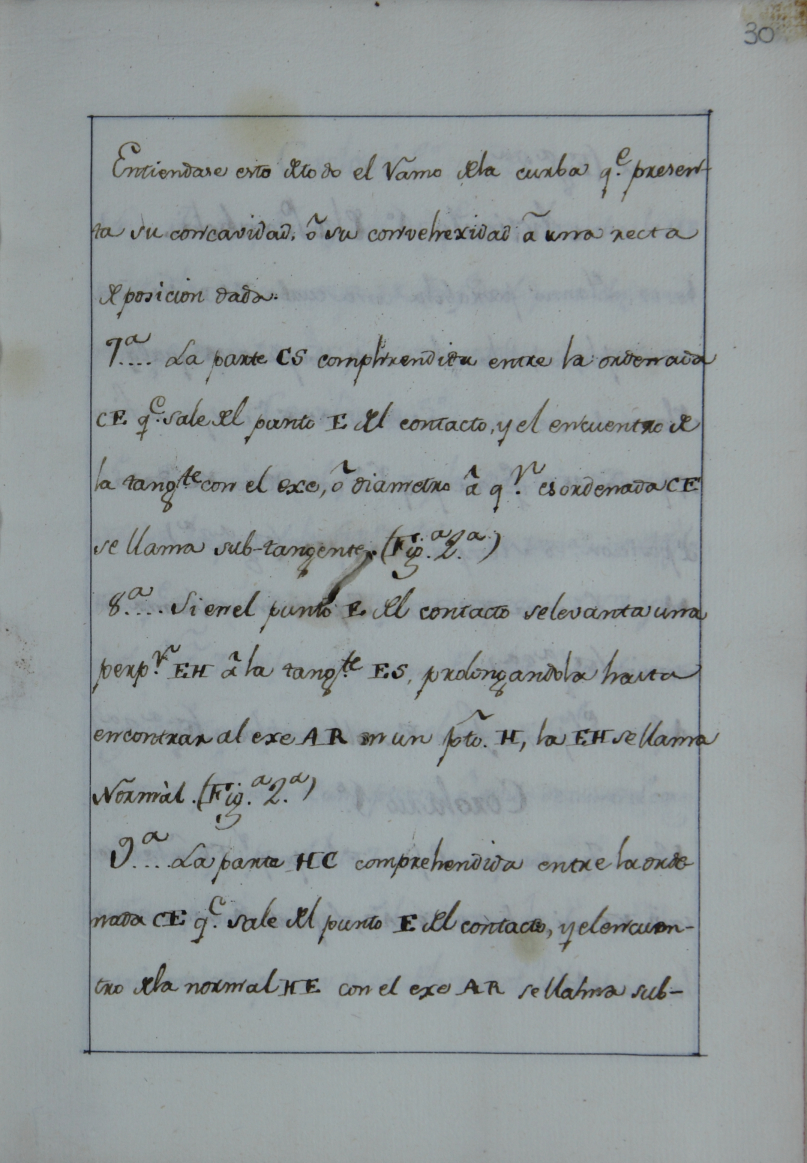 30
Entiendase esto de todo el Ramo de la curba q.e presen-
ta su concavidad, õ su convehexidad ã una recta
de posicion dada.
7.ª.... La parte CS comprhendida entre la ordenada
CE q.e sale del punto E del contacto, y el encuentro de
la tang.te con el exe, õ diametro ã q.n es ordenada CE
se llama sub-tangente. (Fig.ª 2.ª)
8.ª.... Si en el punto E del contacto se levanta una
perp.r EH ã la tang.te ES, prolongandola hasta
encontrar al exe AR en un pto. H, la EH se llama
Normàl. (Fig.ª 2.ª)
9.ª.... La parte HC comprehendida entre la orde
nada CE q.e sale del punto E del contacto, y el encuen-
tro de la normal HE con el exe AR se llama sub-